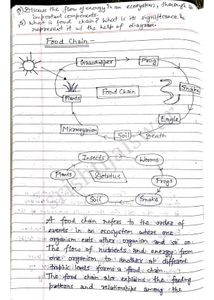 Q) Discuss the flow of energy in an ecosystem, through
important components.
Q) What is food chain? What is its significance &
represent it w/ the help of diagram.
Food Chain -
Grasshopper
Frog
Snake
Plants
Food Chain
Eagle
Microorganism
Soil
Death
Insects
Worms
Plants
Detritus
Frogs
Soil
Snake
A food chain refers to the order of
events in an ecosystem where one
organism eats other organism and so on.
The flow of nutrients and energy from
one organism to another at different
trophic levels forms a food chain.
The food chain also explains the feeding
patterns and relationships among the